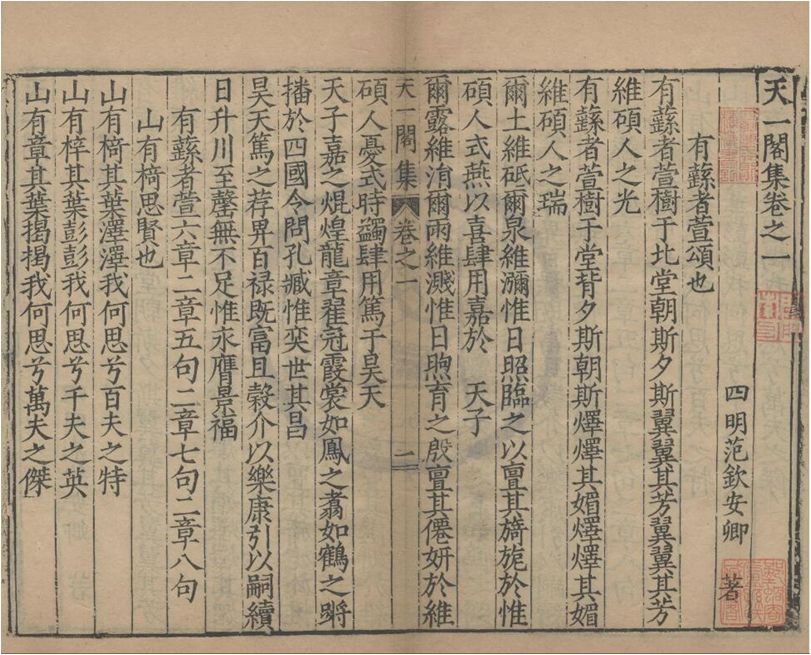 天一閣集卷之一
四明范欽安卿 著
有蘇者萱頌也
有蘇者萱樹于北堂朝斯夕斯翼翼其芳翼翼其芳
維碩人之光
有蘇者萱樹于堂背夕斯朝斯燡燡其媚燡燡其媚
維碩人之瑞
爾土維砥爾泉維瀰惟日照臨之以亶其旖旎於惟
碩人式燕以喜肆用嘉於 天子
爾露維洧爾雨維濺惟日煦育之殷亶其僊妍於維
天一閣集 卷之一 一
碩人憂式時蠲肆用篤于昊天
天子嘉之焜煌龍章翟冠霞裳如鳳之翥如鶴之蹡
播於四國令問孔臧惟奕世其昌
昊天篤之荐畀百祿既富且穀介以樂康引以嗣續
日升川至罄無不足惟永膺景福
有蘇者萱六章二章五句二章七句二章八句
山有椅思賢也
山有椅其葉澤澤我何思兮百夫之特
山有梓其葉彭彭我何思兮千夫之英
山有章其葉揭揭我何思兮萬夫之傑